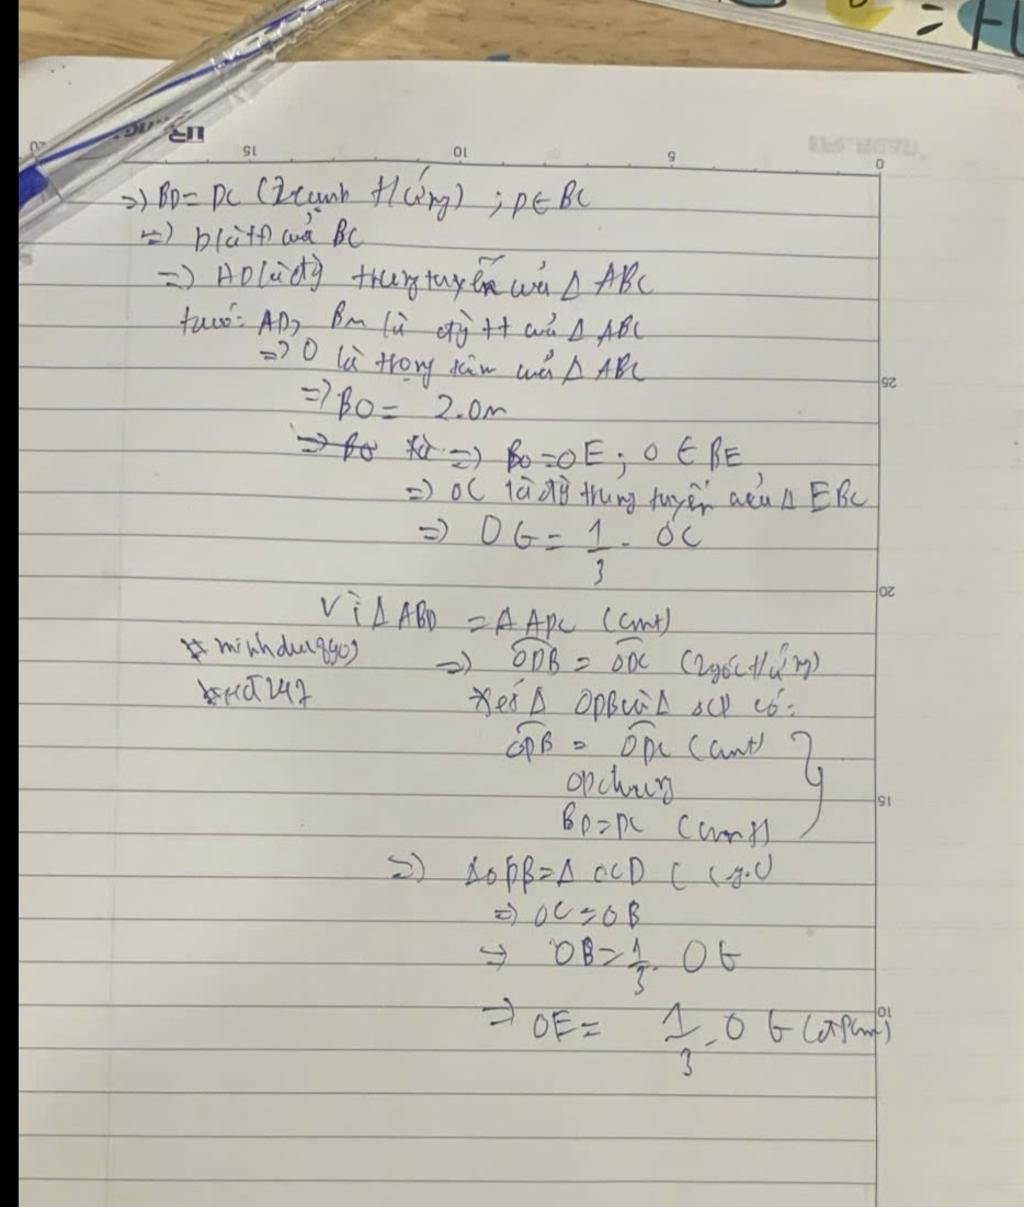 =) BD = DC (2 cạnh t/ứng) ; D ∈ BC
=) D là tđ của BC
=) AD là đg trung tuyến của Δ ABC
có: AD, BM là đg tt của Δ ABC
=> O là trọng tâm của Δ ABC
=> BO = 2.OM
=) BO = OE ; O ∈ BE
=) OC là đg trung tuyến của Δ EBC
=) OG = 1/3 . OC
Vì Δ ABD = Δ ADC (cmt)
=) ODB = ODC (2 góc t/ứng)
Xét Δ ODB và Δ OCD có:
ODB = ODC (cmt)
OD chung
BD = DC (cmt)
=) Δ ODB = Δ OCD (c.g.c)
=) OC = OB
=> OB = 1/3 . OG
=> OE = 1/3 . OG (đpcm)